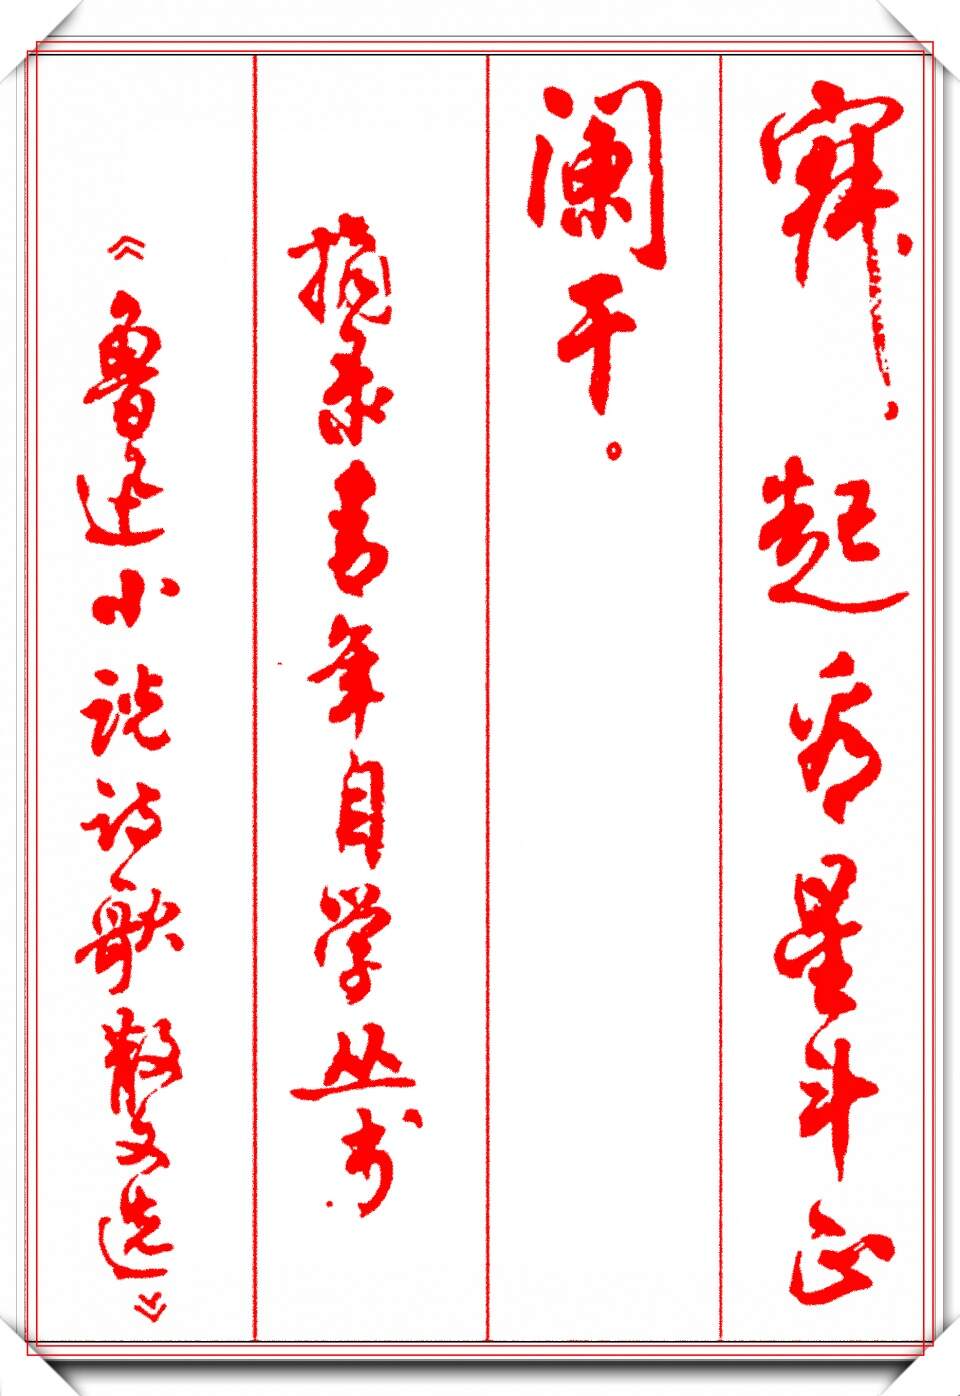 寂，起看星斗正
阑干。
摘录青年自学丛书
《鲁迅小说诗歌散文选》